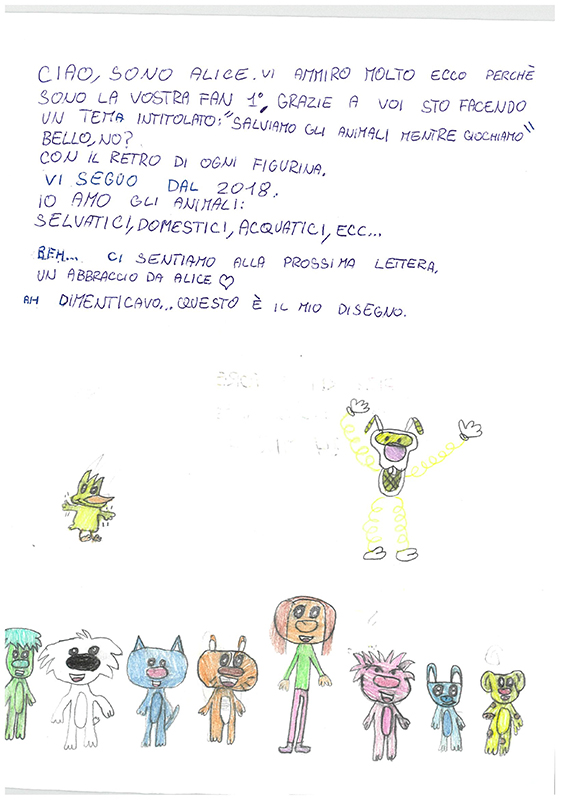 CIAO, SONO ALICE. VI AMMIRO MOLTO ECCO PERCHÈ
SONO LA VOSTRA FAN 1°, GRAZIE A VOI STO FACENDO
UN TEMA INTITOLATO: "SALVIAMO GLI ANIMALI MENTRE GIOCHIAMO"
BELLO, NO?
CON IL RETRO DI OGNI FIGURINA.
VI SEGUO DAL 2018.
IO AMO GLI ANIMALI:
SELVATICI, DOMESTICI, ACQUATICI, ECC...
BEH... CI SENTIAMO ALLA PROSSIMA LETTERA,
UN ABBRACCIO DA ALICE ♡
AH DIMENTICAVO... QUESTO È IL MIO DISEGNO.